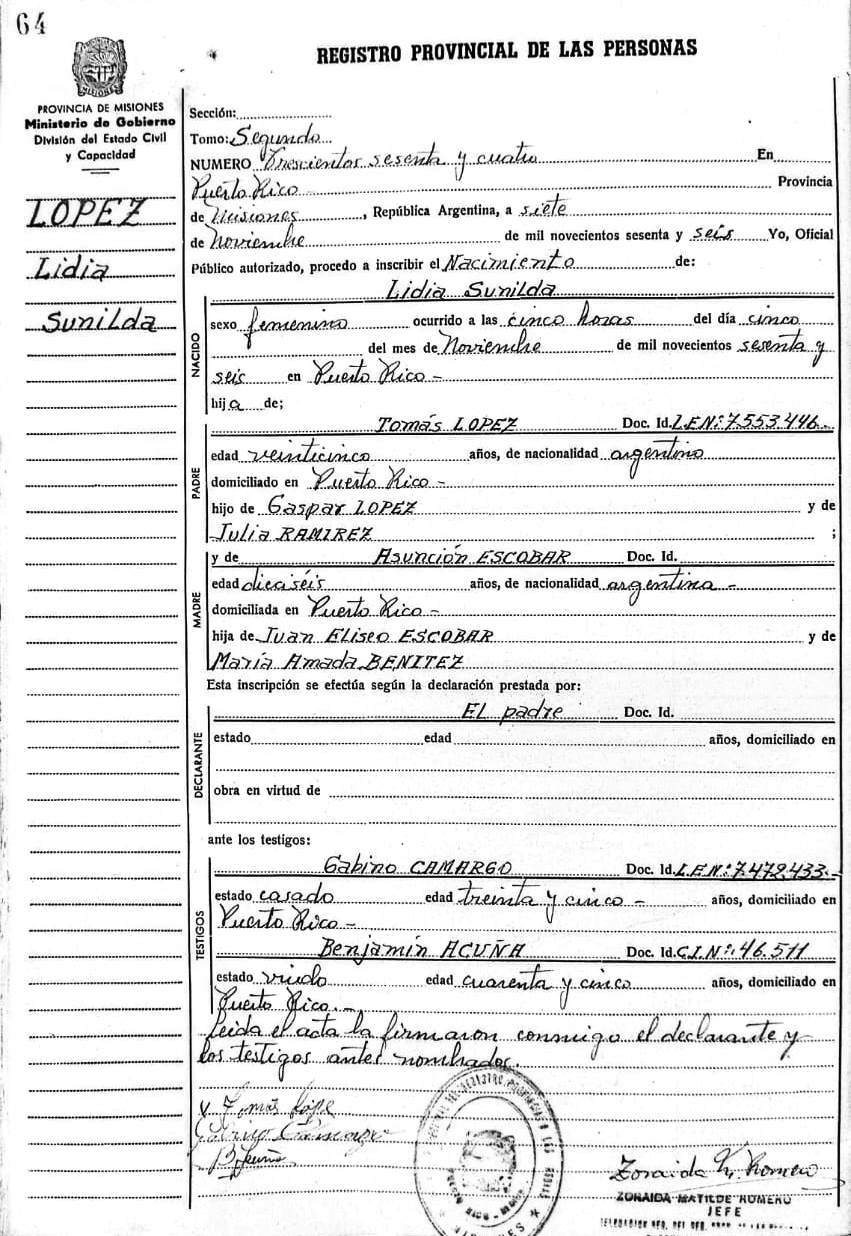 64
REGISTRO PROVINCIAL DE LAS PERSONAS
MISIONES
PROVINCIA DE MISIONES
Ministerio de Gobierno
División del Estado Civil
y Capacidad
LOPEZ
Lidia
Sunilda
Sección:
Tomo: Segundo
NUMERO Trescientos sesenta y cuatro En
Puerto Rico Provincia
de Misiones, República Argentina, a siete
de Noviembre de mil novecientos sesenta y seis Yo, Oficial
Público autorizado, procedo a inscribir el Nacimiento de:
NACIDO
Lidia Sunilda
sexo femenino ocurrido a las cinco horas del día cinco
del mes de Noviembre de mil novecientos sesenta y
seis en Puerto Rico -
hija de;
PADRE
Tomás LOPEZ Doc. Id. L.E.Nº: 7.553.446.-
edad veinticinco años, de nacionalidad argentino
domiciliado en Puerto Rico -
hijo de Gaspar LOPEZ y de
Julia RAMIREZ ;
MADRE
y de Asunción ESCOBAR Doc. Id.
edad dieciséis años, de nacionalidad argentina -
domiciliada en Puerto Rico -
hija de Juan Eliseo ESCOBAR y de
María Amada BENITEZ
Esta inscripción se efectúa según la declaración prestada por:
DECLARANTE
El padre Doc. Id.
estado edad años, domiciliado en
obra en virtud de
ante los testigos:
TESTIGOS
Gabino CAMARGO Doc. Id. L.E.Nº: 7.472.433.-
estado casado edad treinta y cinco - años, domiciliado en
Puerto Rico -
Benjamín ACUÑA Doc. Id. C.I.Nº: 46.511
estado viudo edad cuarenta y cinco años, domiciliado en
Puerto Rico. -
Leida el acta la firmaron conmigo el declarante y
los testigos antes nombrados.
Tomás Lope
Gabino Camargo
B Acuña
Zoraida M. Romero
ZORAIDA MATILDE ROMERO
JEFE